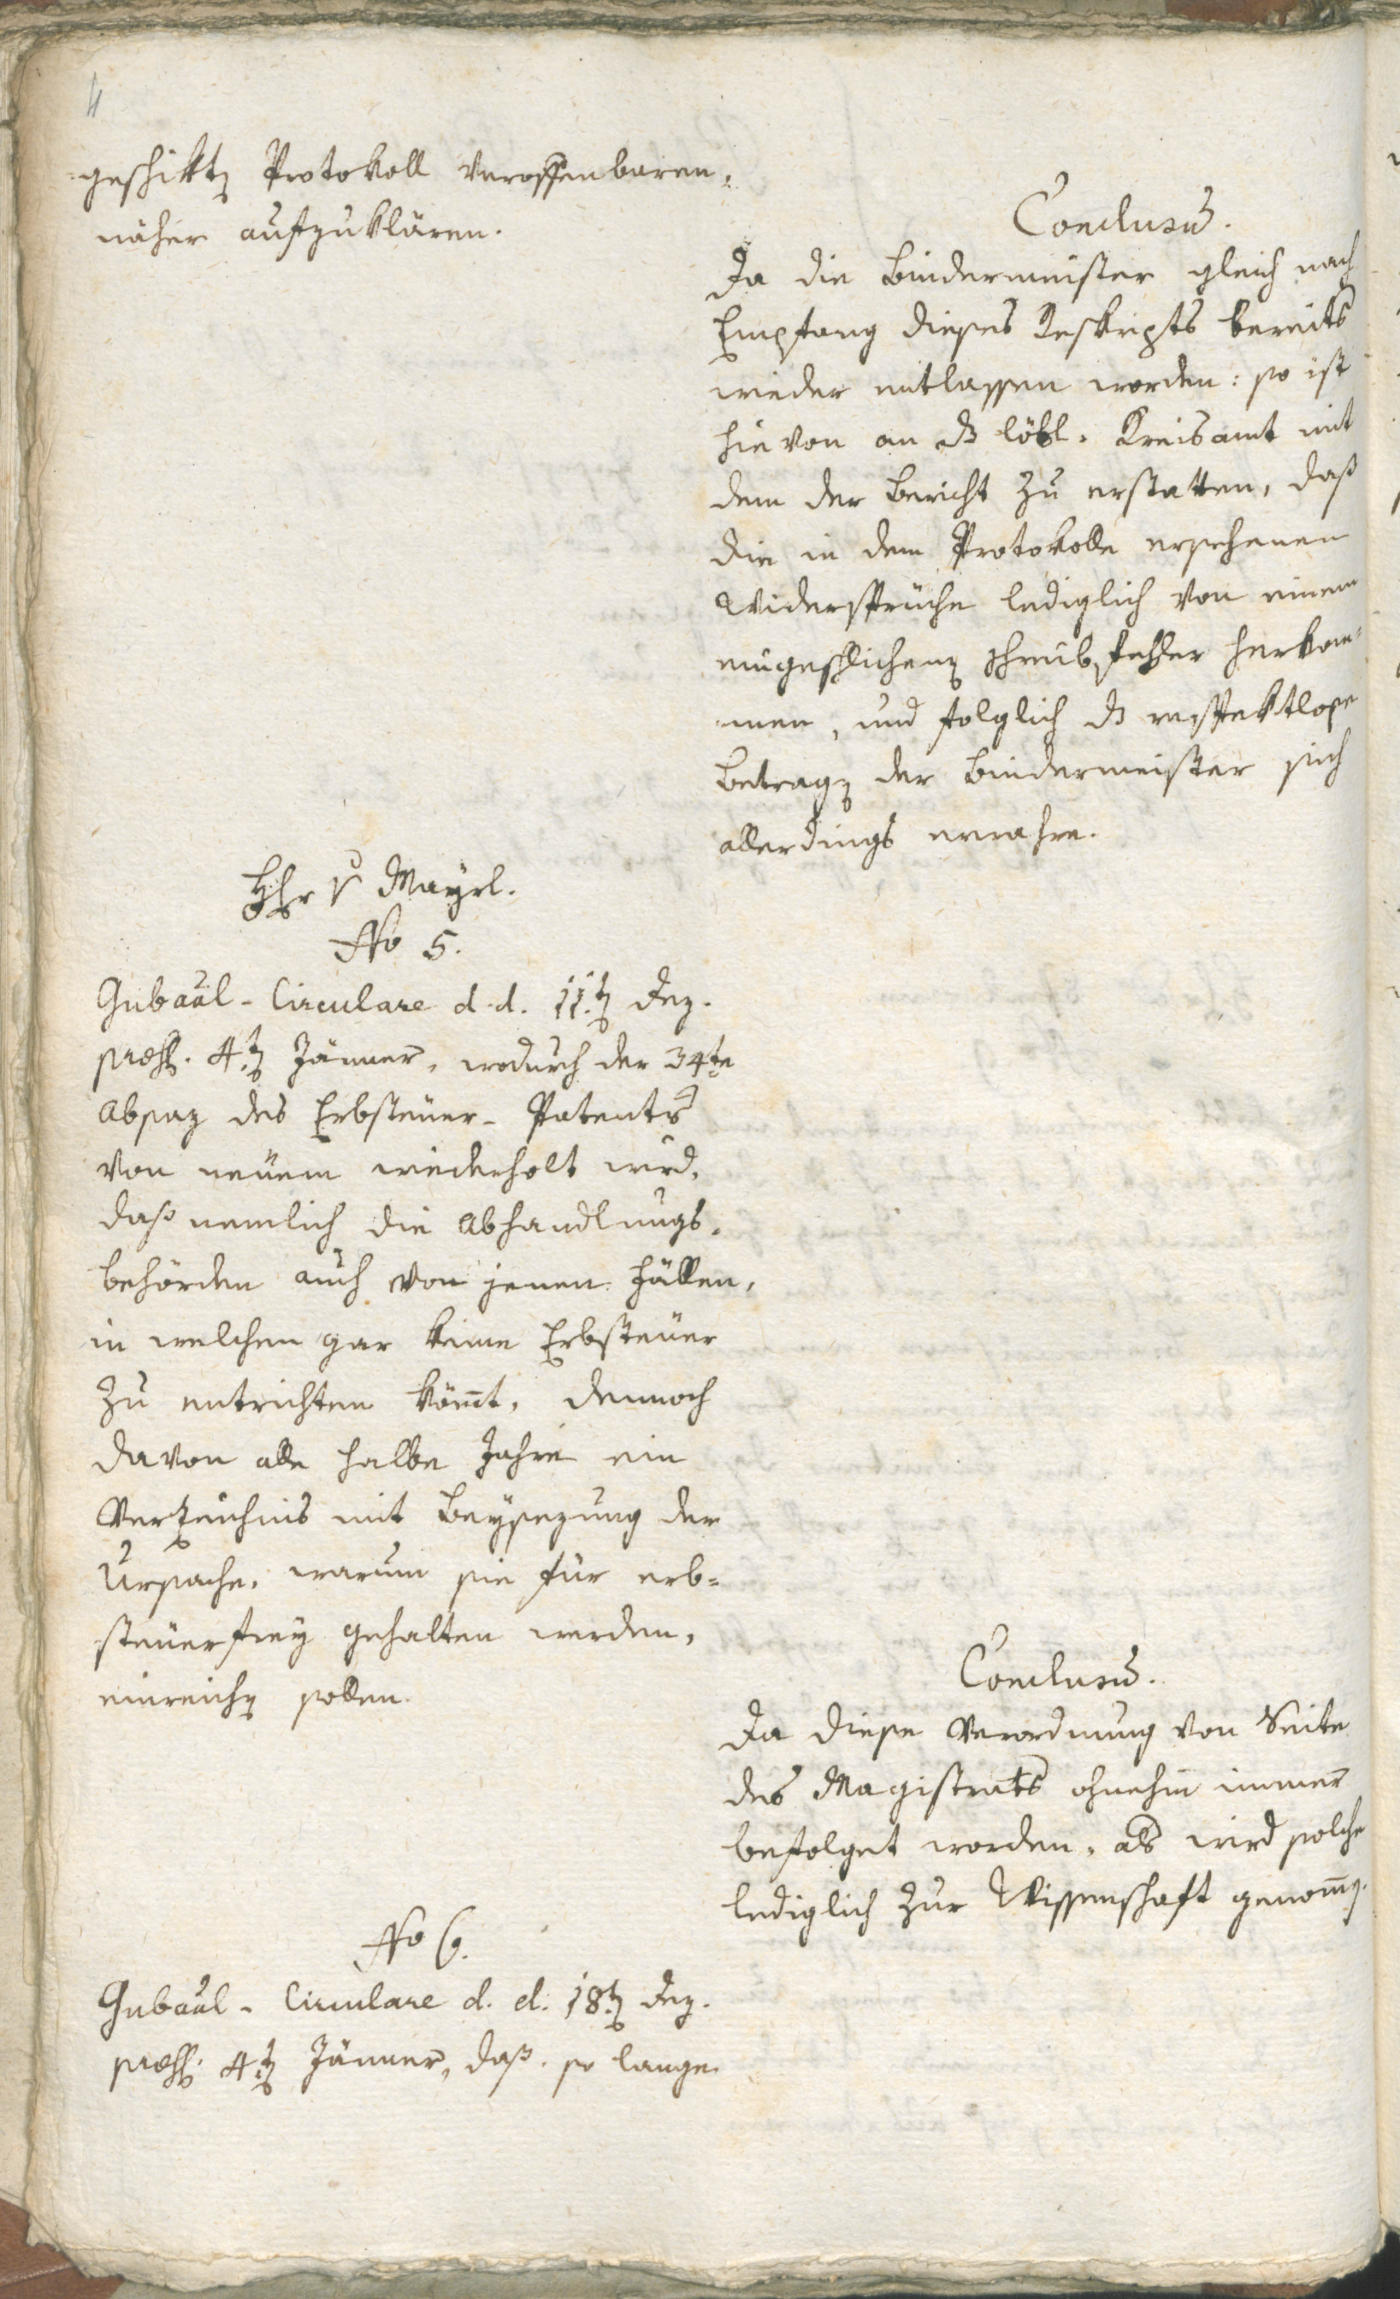 4
geschikten Protokoll veroffenbaren,
näher aufzuklären.
Conclusū.
Da die Bindermeister gleich nach
Empfang dieses Reskripts bereits
wieder entlassen worden: so ist
hievon an das löbl. Kreisamt mit
dem der Bericht zu erstatten, daß
die in dem Protokolle ersehenen
Widersprüche lediglich von einem
eingeschlichenen Schreibfehler herkom¬
men, und folglich das respektlose
Betragen der Bindermeister sich
allerdings erwahre.
Hr v Mayrl.
No 5.
Gubāal-Circulare d. d. 11.ten Dez.
præs. 4.ten Jänner, wodurch der 34te
Absaz des Erbsteuer-Patents
von neuem wiederholt wird,
daß nemlich die Abhandlungs-
behörden auch von jenen Fällen,
in welchen gar keine Erbsteuer
zu entrichten köm̄t, dennoch
davon alle halbe Jahre ein
Verzeichnis mit Beysezung der
Ursache, warum sie für erb-
steuerfrey gehalten werden,
einreichen sollen.
Conclusū.
Da diese Verordnung von Seite
des Magistrats ohnehin immer
befolget worden, als wird solche
lediglich zur Wissenschaft genom̄en.
No 6.
Gubāal-Circulare d. d. 18.ten Dez.
præs. 4.ten Jänner, daß so lange